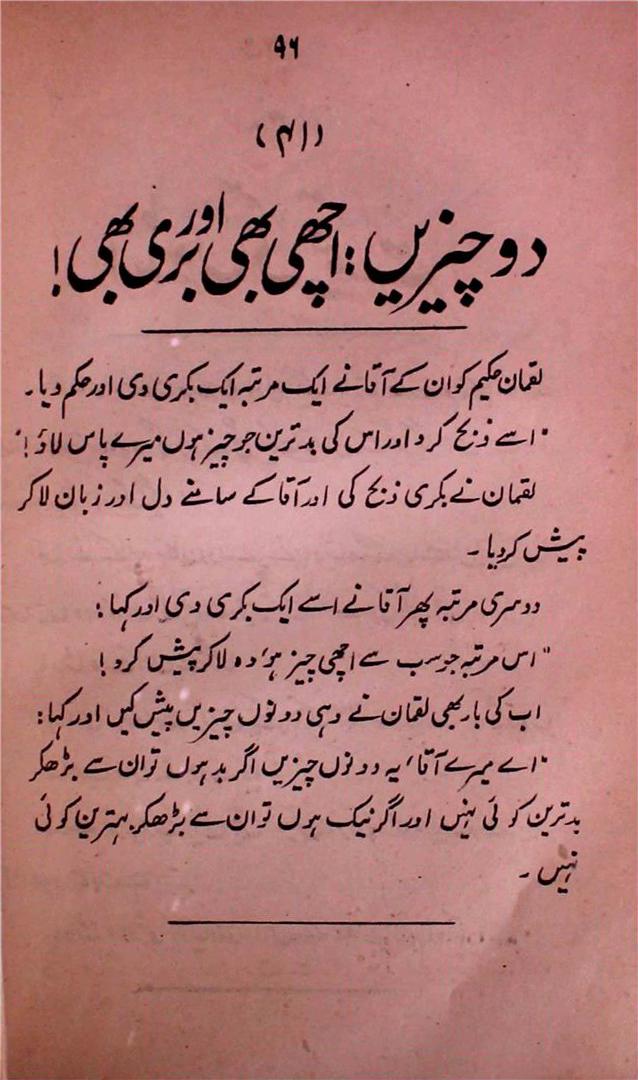 ۹۶
(۴۱)
دو چیزیں: اچھی بھی اور بری بھی!
لقمان حکیم کو ان کے آقا نے ایک مرتبہ ایک بکری دی اور حکم دیا۔
"اسے ذبح کرو اور اس کی بدترین جو چیز ہوں میرے پاس لاؤ!"
لقمان نے بکری ذبح کی اور آقا کے سامنے دل اور زبان لا کر
پیش کر دیا۔
دوسری مرتبہ پھر آقا نے اسے ایک بکری دی اور کہا:
"اس مرتبہ جو سب سے اچھی چیز ہو، وہ لا کر پیش کرو!
اب کی بار بھی لقمان نے وہی دونوں چیزیں پیش کیں اور کہا:
"اے میرے آقا، یہ دونوں چیزیں اگر بد ہوں تو ان سے بڑھکر
بدترین کوئی نہیں اور اگر نیک ہوں تو ان سے بڑھکر بہترین کوئی
نہیں۔